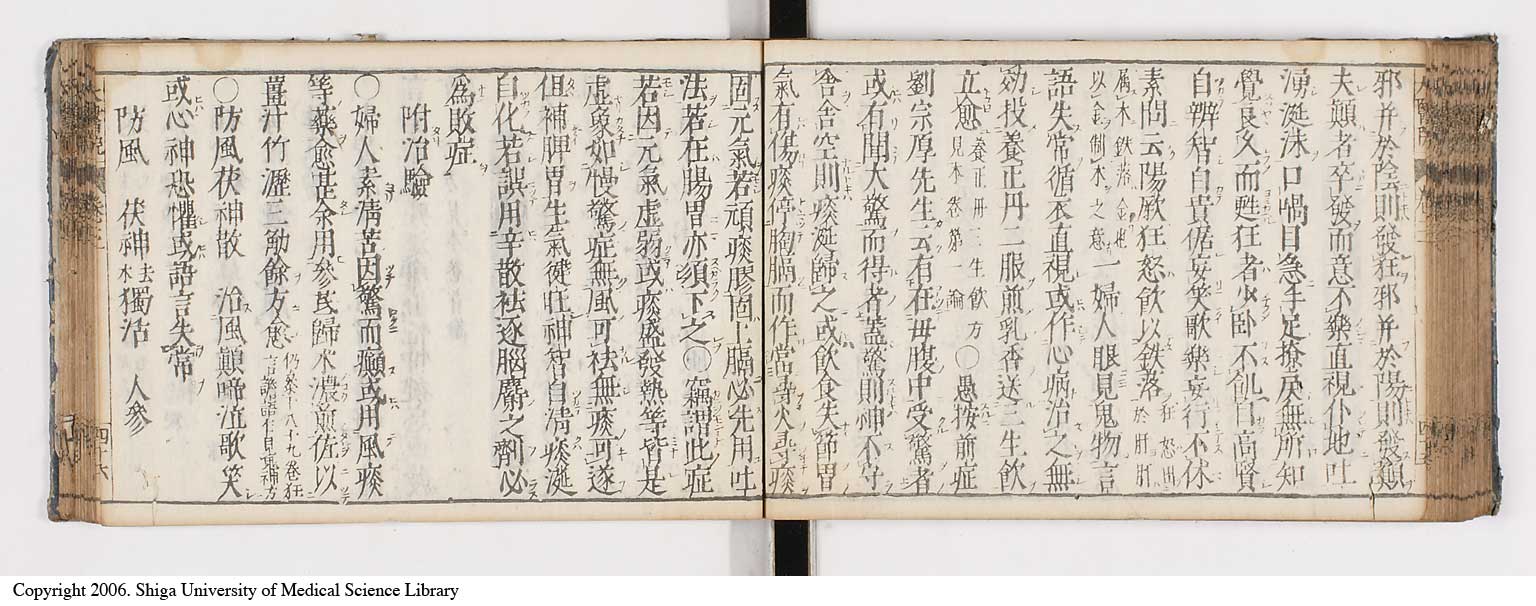 邪并於陰則發狂邪并於陽則發顚
夫顚者卒發而意不樂直視仆地吐
湧涎沫口喎目急手足撩戾無所知
覺良久而甦狂者少卧不飢自高賢
自辨智自貴倨妄笑歌樂妄行不休
素問云陽厥狂怒飮以鉄落狂怒出於肝肝属木鉄落金也以金制木之意一婦人眼見鬼物言
語失常循衣直視或作心病治之無
効投養正丹二服煎乳香送三生飮
立愈養正丹三生飮方見本卷第一論〇愚按前症
劉宗厚先生云有在母腹中受驚者
或有聞大驚而得者蓋驚則神不守
舍舍空則痰涎歸之或飮食失節胃
氣有傷痰停胸膈而作當寺火尋痰
固元氣若頑痰膠固上膈必先用吐
法若在腸胃亦須下之〇竊謂此症
若因元氣虛弱或痰盛發熱等皆是
虛象如慢驚症無風可祛無痰可逐
但補脾胃生氣健旺神智自淸痰涎
自化若誤用辛散祛逐腦麝之劑必
爲敗症
附治驗
〇婦人素淸苦因驚而癲或用風痰
等藥愈甚余用參芪歸朮濃煎佐以
薑汁竹瀝三觔餘方愈仍參十八十九卷狂言譫語
〇防風茯神散 治風顚啼泣歌笑
或心神恐懼或語言失常
防風 茯神去木 獨活 人參
四十六
Copyright 2006. Shiga University of Medical Science Library